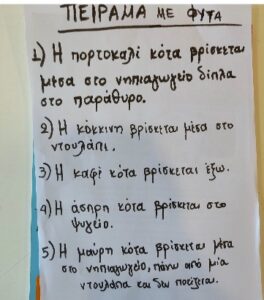 ΠΕΙΡΑΜΑ ΜΕ ΦΥΤΑ
1) Η πορτοκαλί κότα βρίσκεται
μέσα στο νηπιαγωγείο δίπλα
στο παράθυρο.
2) Η κόκκινη βρίσκεται μέσα στο
ντουλάπι.
3) Η καφέ κότα βρίσκεται έξω.
4) Η άσπρη κότα βρίσκεται στο
ψυγείο.
5) Η μαύρη κότα βρίσκεται μέσα
στο νηπιαγωγείο, πάνω από μία
ντουλάπα και δεν ποτίζεται.